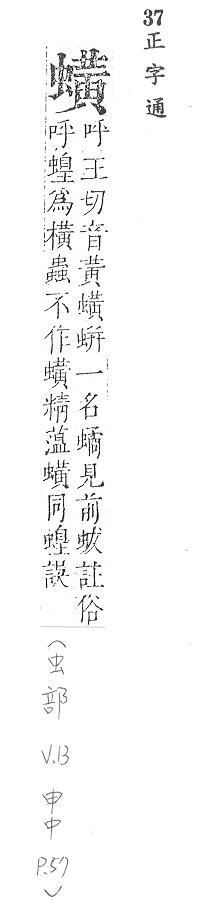 37正字通
蟥
呼王切音黃蟥蛢一名𧑐見前蛂註俗
呼蝗為橫蟲不作蟥精薀蟥同蝗誤
(虫部 V.13 申中 P.57)